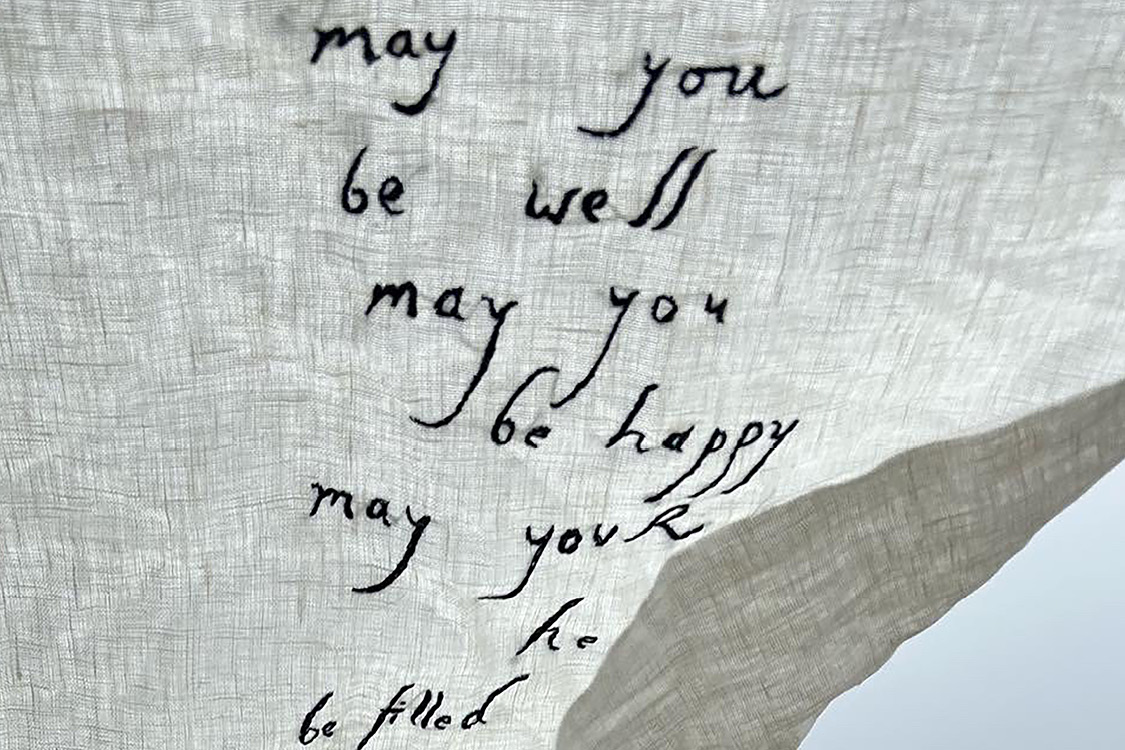 may you
be well
may you
be happy
may your
he
be filled